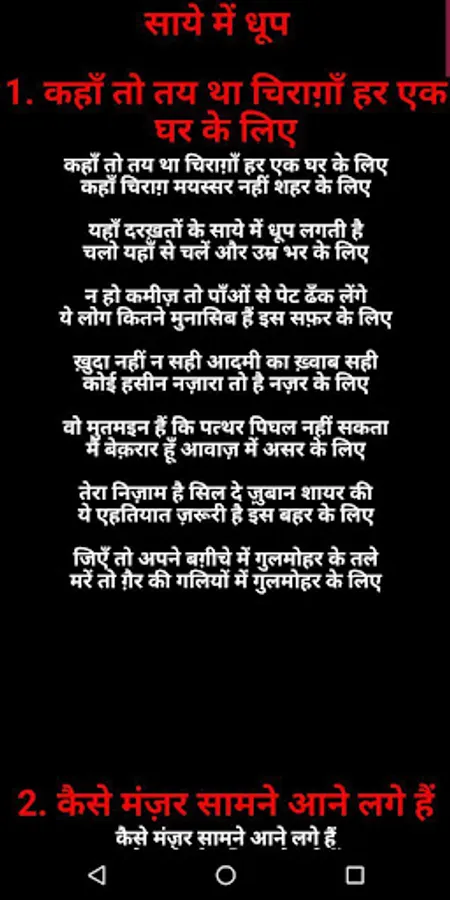 साये में धूप
1. कहाँ तो तय था चिराग़ाँ हर एक
घर के लिए
कहाँ तो तय था चिराग़ाँ हर एक घर के लिए
कहाँ चिराग़ मयस्सर नहीं शहर के लिए
यहाँ दरख़तों के साये में धूप लगती है
चलो यहाँ से चलें और उम्र भर के लिए
न हो कमीज़ तो पाँओं से पेट ढँक लेंगे
ये लोग कितने मुनासिब हैं इस सफ़र के लिए
ख़ुदा नहीं न सही आदमी का ख़्वाब सही
कोई हसीन नज़ारा तो है नज़र के लिए
वो मुतमइन हैं कि पत्थर पिघल नहीं सकता
मैं बेक़रार हूँ आवाज़ में असर के लिए
तेरा निज़ाम है सिल दे ज़ुबान शायर की
ये एहतियात ज़रूरी है इस बहर के लिए
जिएँ तो अपने बग़ीचे में गुलमोहर के तले
मरें तो ग़ैर की गलियों में गुलमोहर के लिए
2. कैसे मंज़र सामने आने लगे हैं
कैसे मंज़र सामने आने लगे हैं